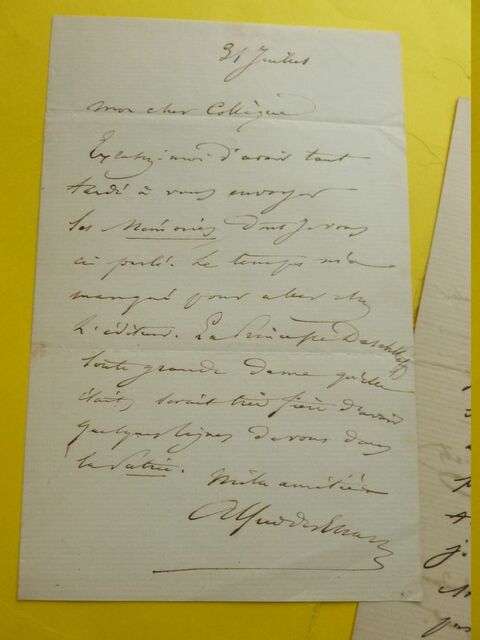 31 Juillet
Mon cher Collègue
Excusez-moi d'avoir tant
tardé à vous envoyer
les Mémoires dont je vous
ai parlé. Le temps m'a
manqué pour aller chez
L'éditeur. La Princesse Daschkoff
toute grande dame qu'elle
était, serait très fière d'avoir
quelques lignes de vous dans
la Patrie.
Mille amitiés
Alfred des Essarts